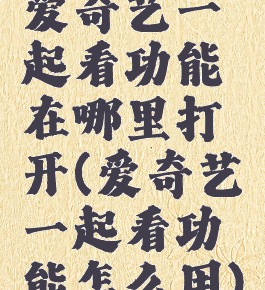 爱奇艺一
起看功能
在哪里打
开(爱奇艺
一起看功
能怎么用)